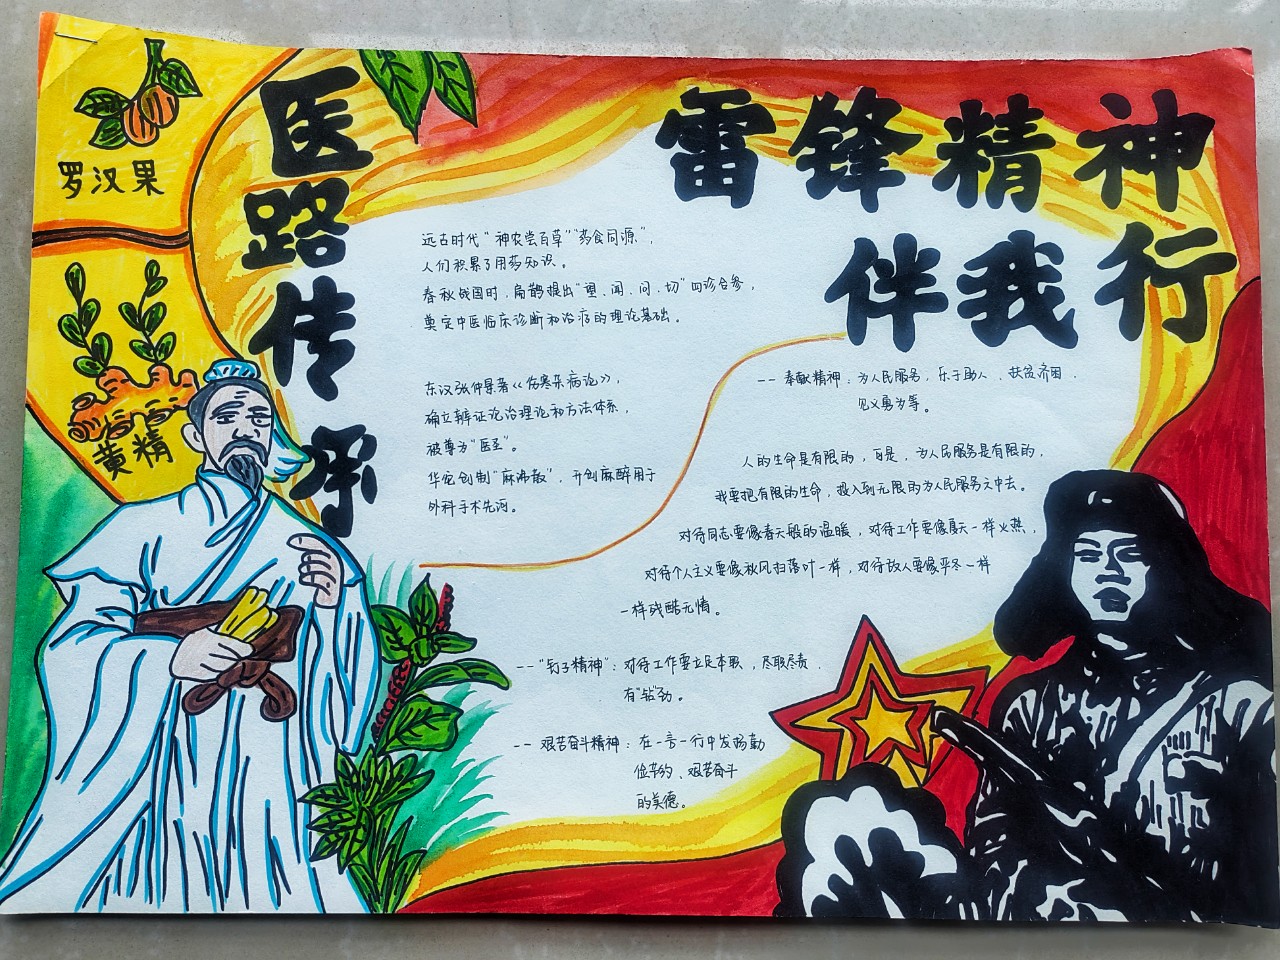 医路传承
雷锋精神
伴我行
罗汉果
黄精
远古时代“神农尝百草”“药食同源”，
人们积累了用药知识。
春秋战国时，扁鹊提出“望、闻、问、切”四诊合参，
奠定中医临床诊断和治疗的理论基础。
东汉张仲景著《伤寒杂病论》，
确立辨证论治理论和方法体系，
被尊为“医圣”。
华佗创制“麻沸散”，开创麻醉用于
外科手术先河。
-- 奉献精神：为人民服务，乐于助人、扶贫济困、
见义勇为等。
人的生命是有限的，可是，为人民服务是有限的，
我要把有限的生命，投入到无限的为人民服务之中去。
对待同志要像春天般的温暖，对待工作要像夏天一样火热，
对待个人主义要像秋风扫落叶一样，对待敌人要像严冬一样
一样残酷无情。
--“钉子精神”：对待工作要立足本职，尽职尽责，
有“钻”劲。
-- 艰苦奋斗精神：在一言一行中发扬勤
俭节约、艰苦奋斗
的美德。